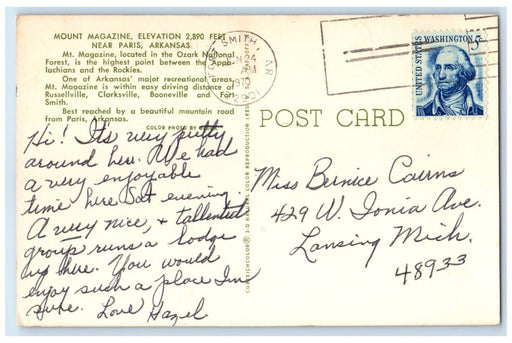 MOUNT MAGAZINE, ELEVATION 2,890 FEET
NEAR PARIS, ARKANSAS
Mt. Magazine, located in the Ozark National
Forest, is the highest point between the Appa-
lachions and the Rockies.
One of Arkansas' major recreational areas,
Mt. Magazine is within easy driving distance of
Russellville, Clarksville, Booneville and Fort
Smith.
Best reached by a beautiful mountain road
from Paris, Arkansas.
COLOR PHOTO BY
SMITH, AR
24
AM
1970
UNITED STATES
WASHINGTON 5c
POST CARD
Hi! It's very pretty
around here. We had
a very enjoyable
time here Sat evening
A very nice, & tallented
group runs a lodge
up here. You would
enjoy such a place I'm
sure. Love Hazel
Miss Bernice Cairns
429 W. Ionia Ave.
Lansing Mich.
48933